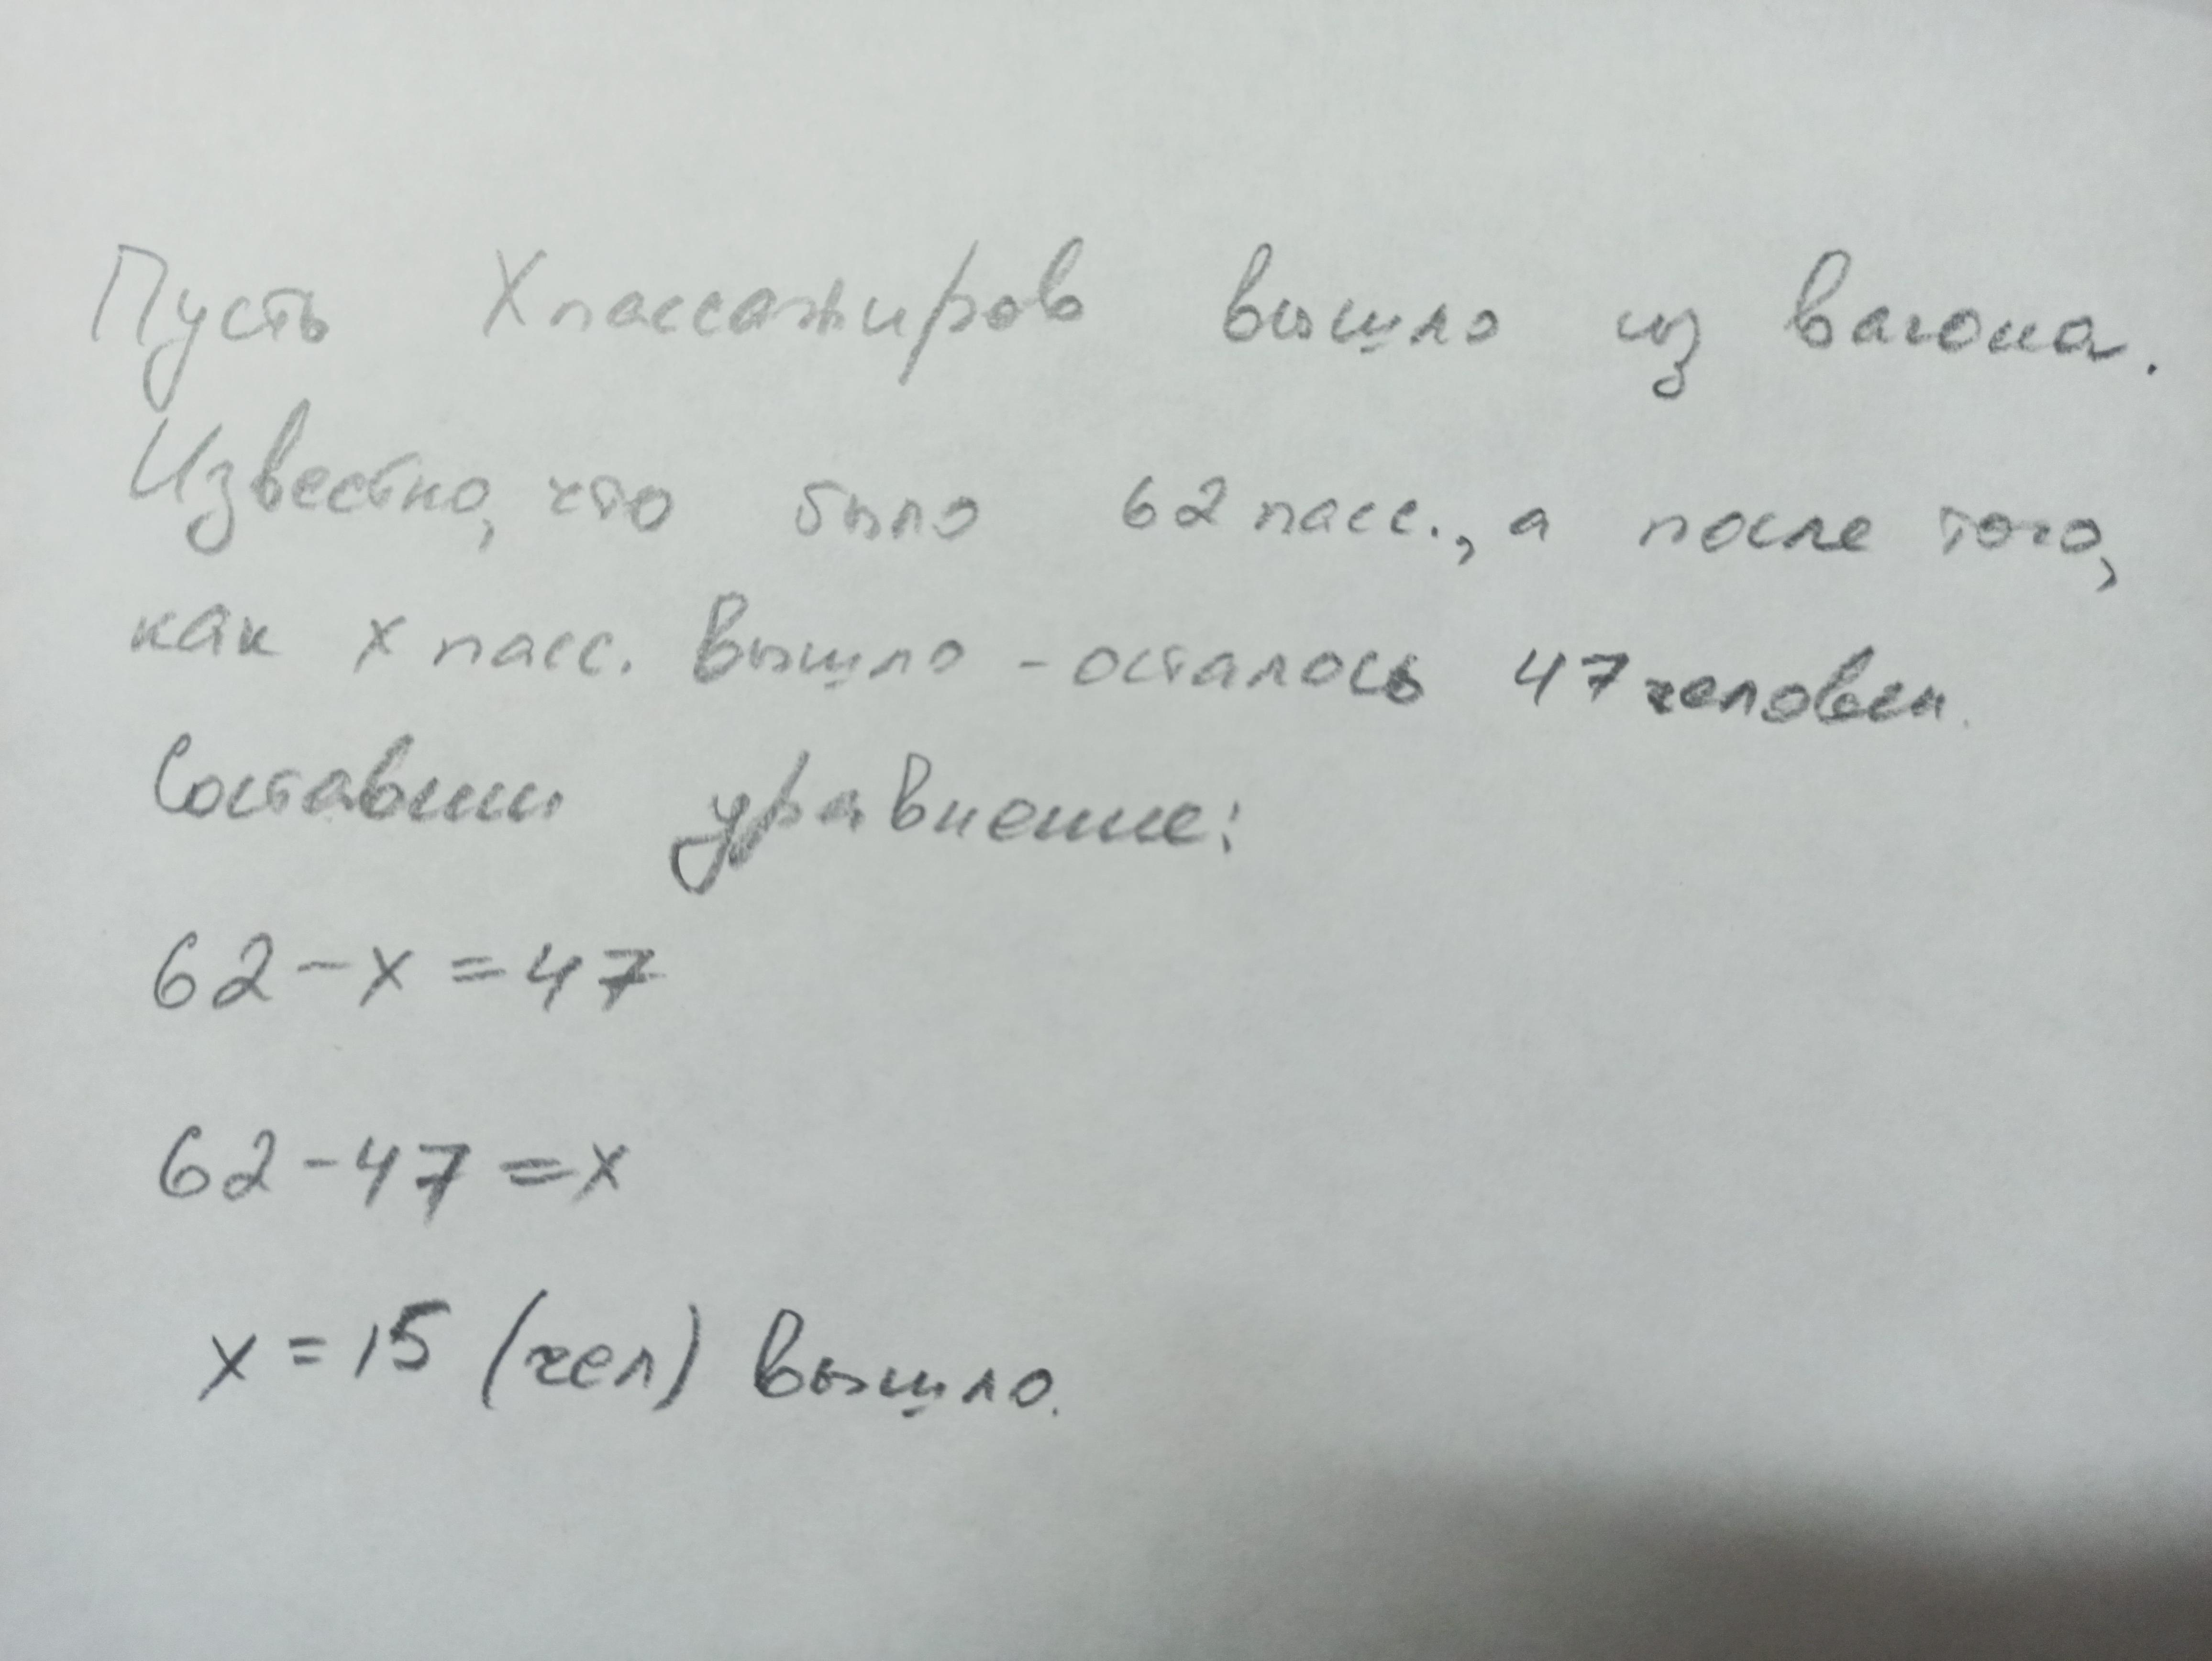 Пусть X пассажиров вышло из вагона.
Известно, что было 62 пасс., а после того,
как x пасс. вышло - осталось 47 человек.
Составим уравнение:
62 - x = 47
62 - 47 = x
x = 15 (чел) вышло.